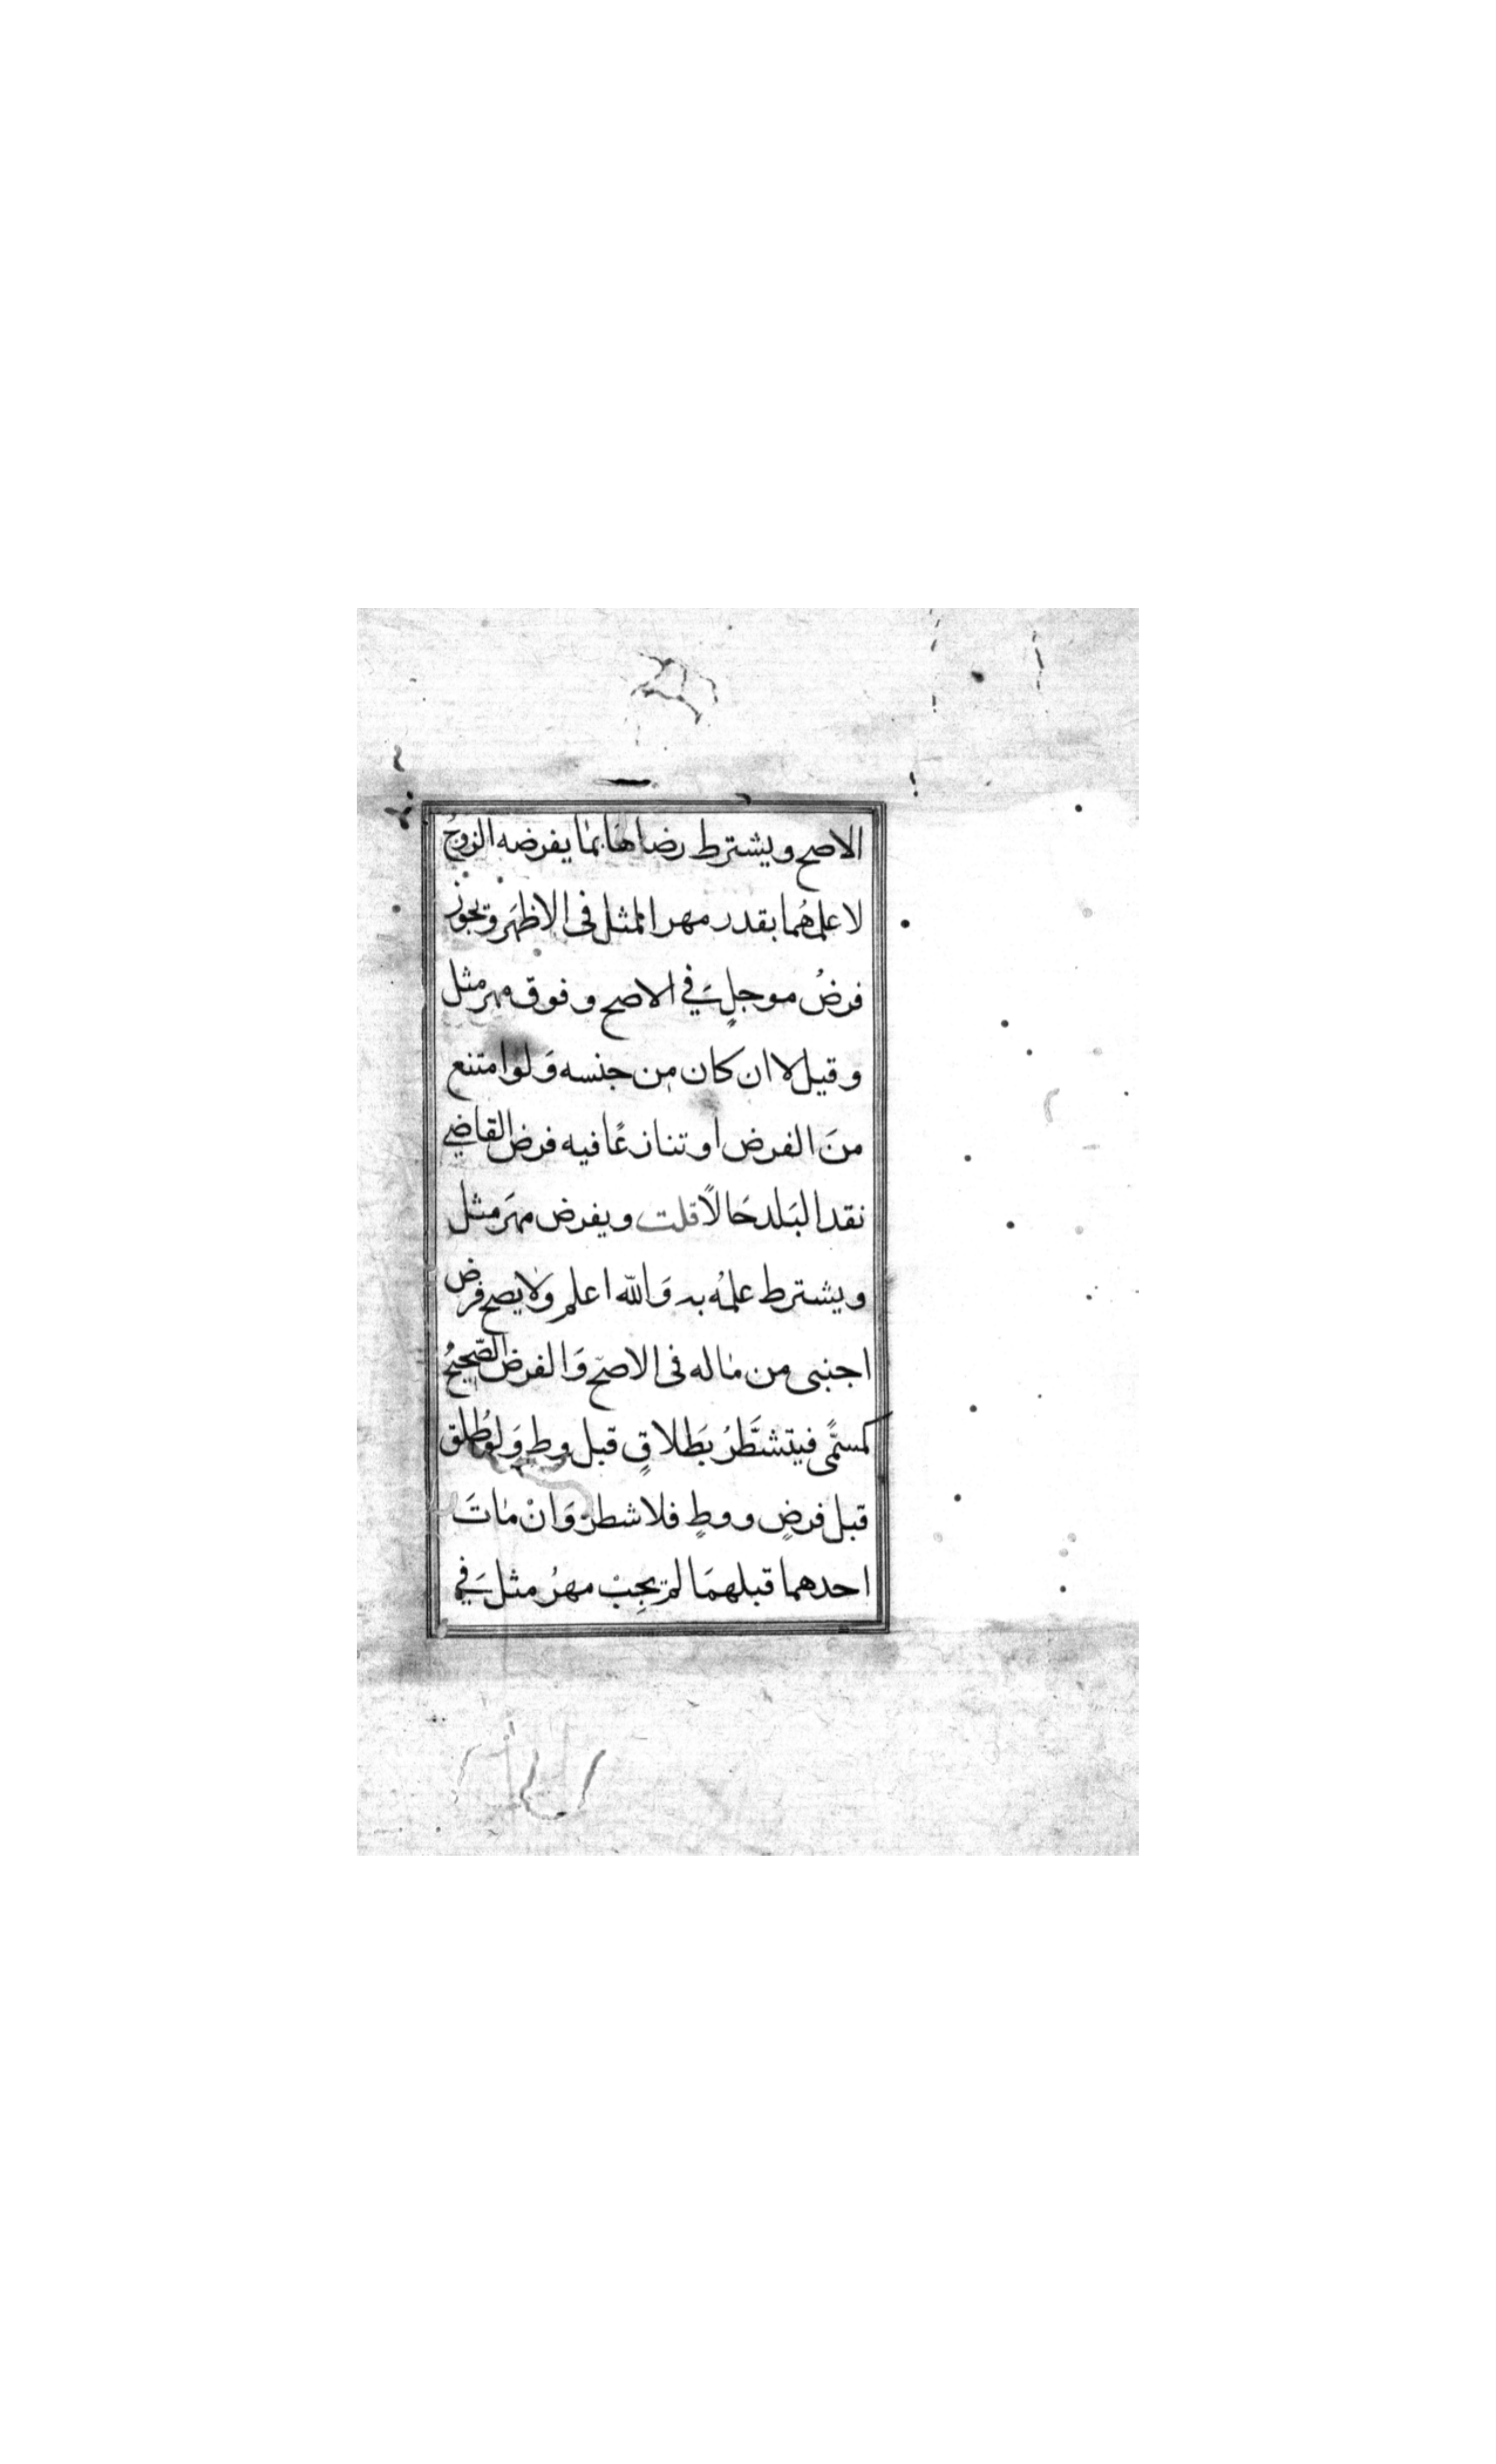 الاصح ويشترط رضاها بما يفرضه الزوجُ
لا علمهُما بقدر مهر المثل فى الاظهَر ويجوز
فرضُ موجلٍ فَي الاصح وفوق مهر مثل
وقيل لا ان كان من جنسه وَلو امتنع
منَ الفرض او تنازعًا فيه فرض القاضي
نقد البَلد حَالًا قلت ويفرض مهَر مثل
ويشترط علمُه به وَالله اعلم ولا يصح فرض
اجنبى من ماله فى الاصّح وَالفرض الصّحيحُ
كمسمًّى فيتشطَّرُ بطَلاقٍ قبل وطٍ وَلو طُلق
قبل فرضٍ ووطٍ فلا شطر وَانْ ماتَ
احدهما قبلهمَا لم يجِبْ مهرُ مثل فَي